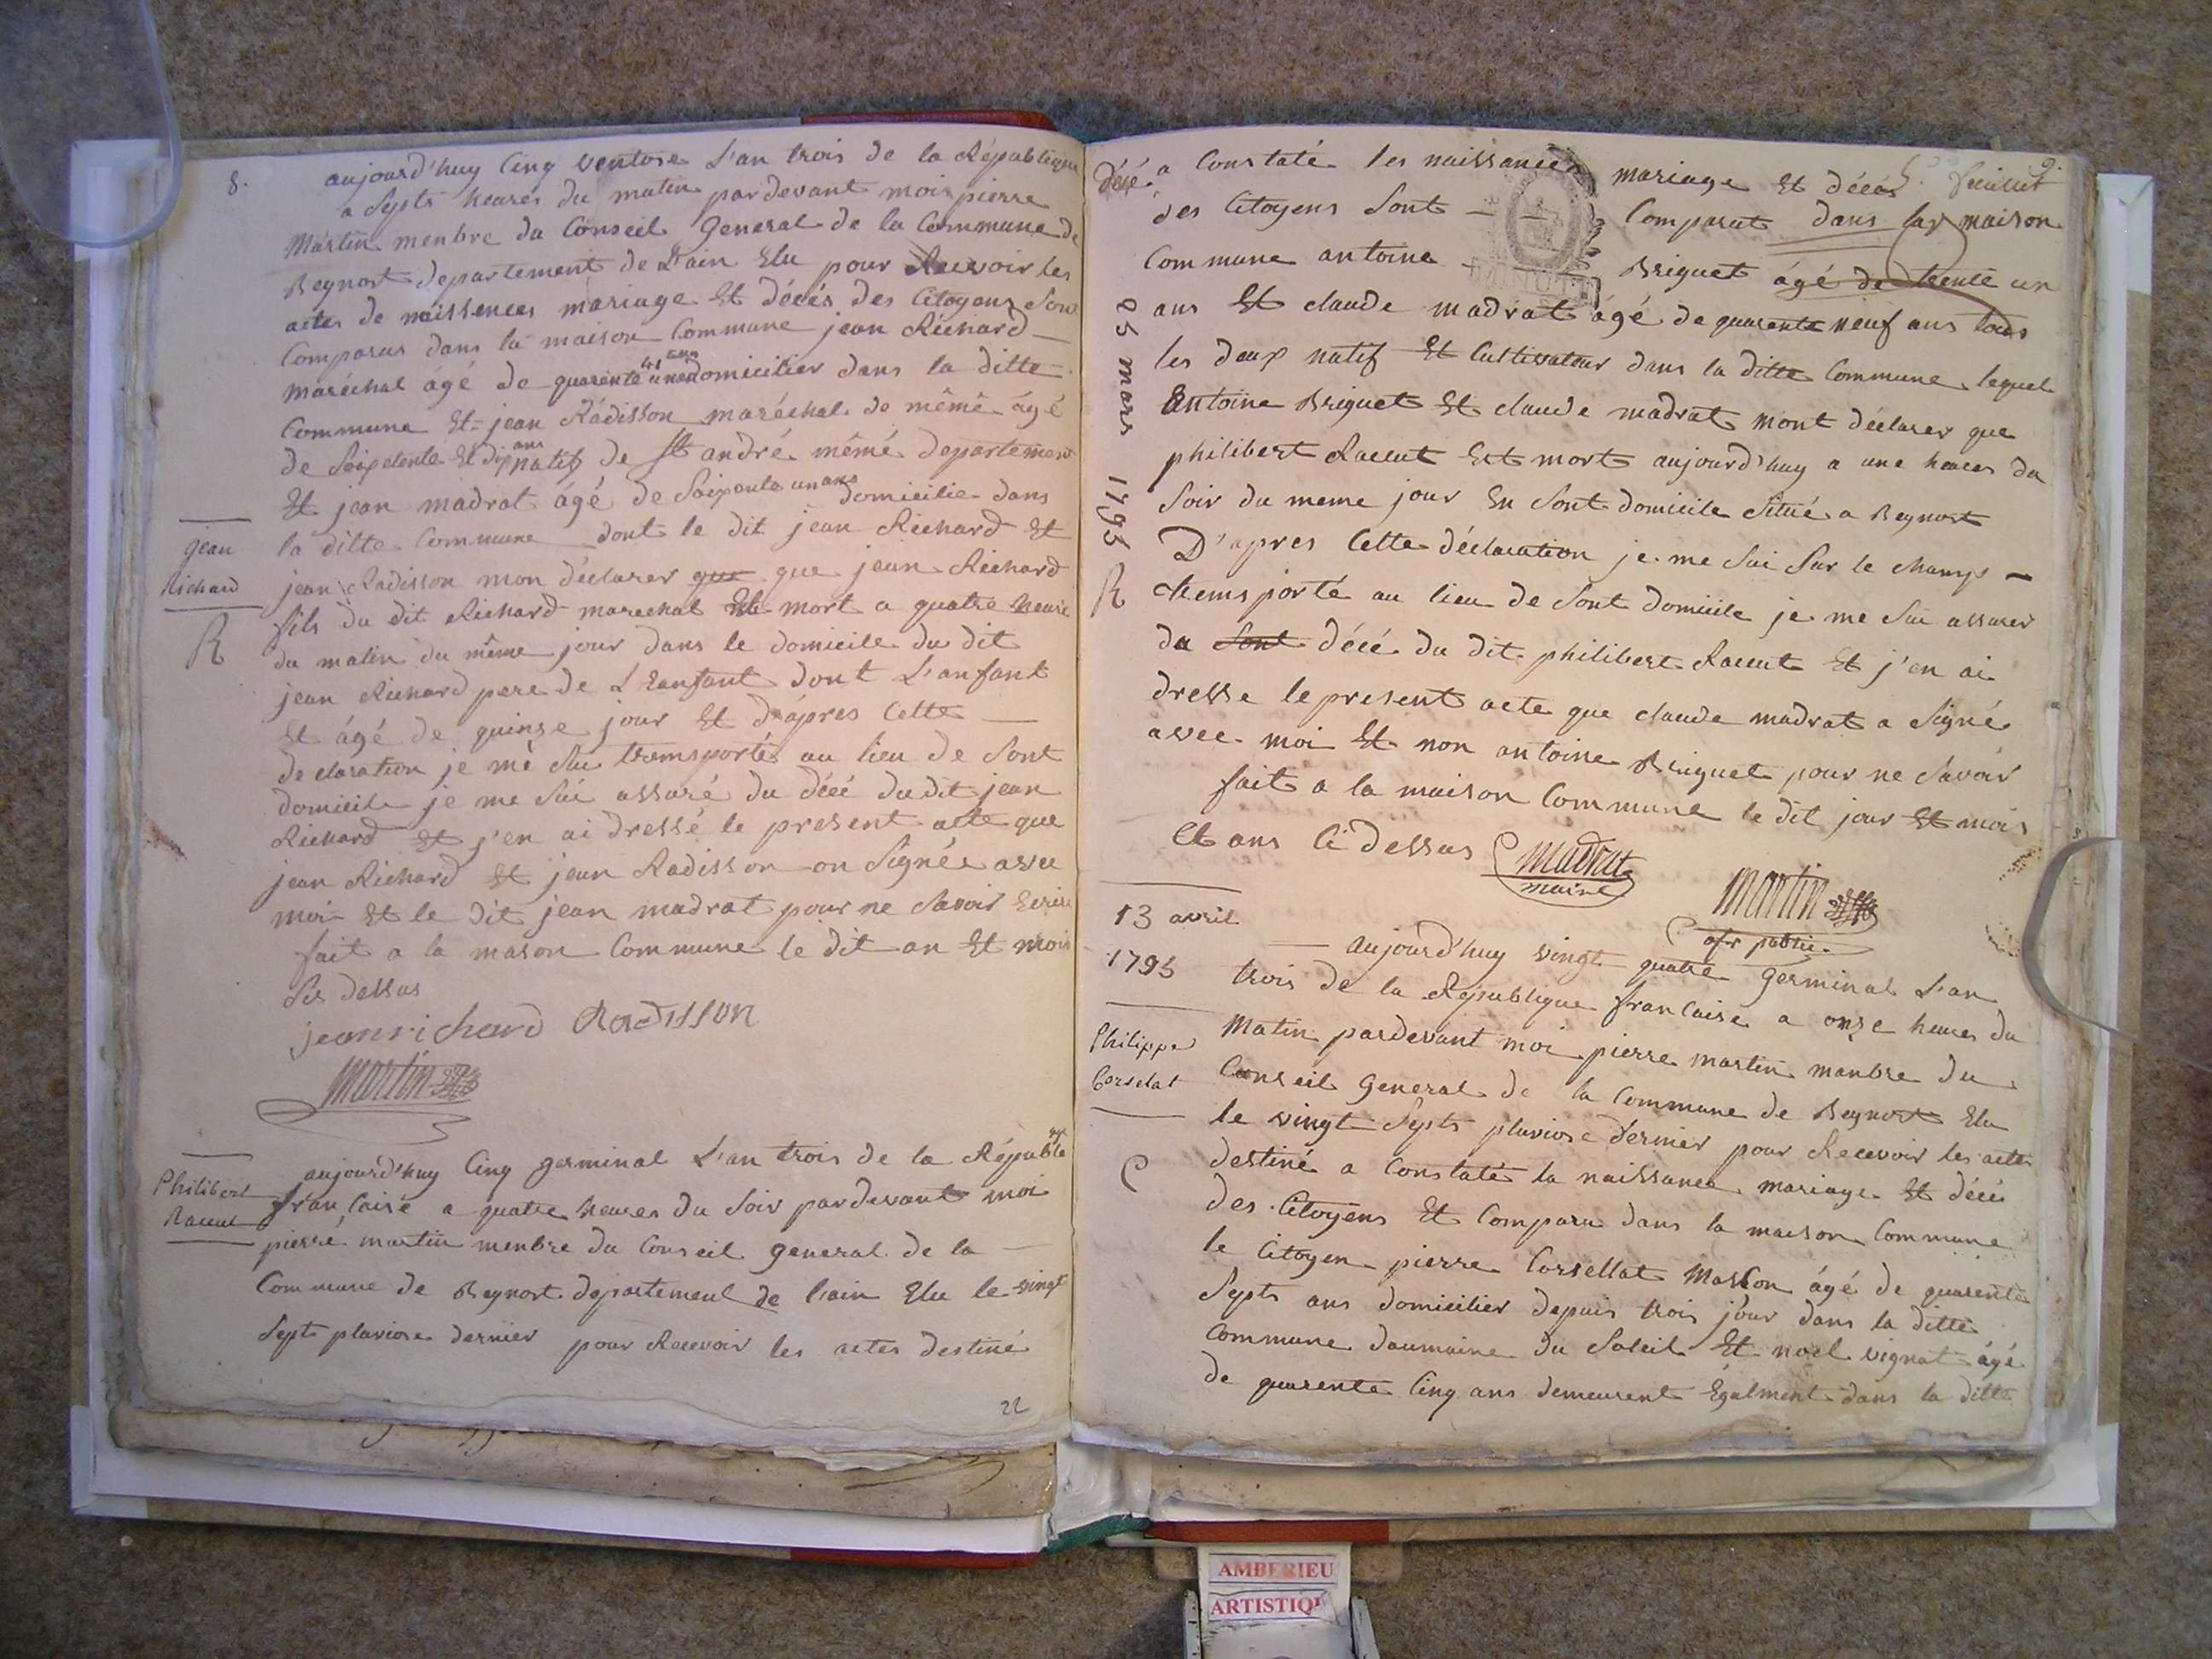 8.
aujourd'huy Cinq ventose L'an trois de la République
a Septs heures du matin pardevant moi pierre
Martin menbre du Conseil General de la Commune de
Beynost departement de L'ain Elu pour Recevoir les
actes de naissences mariage Et décés des Citoyens Sont
Comparus dans la maison Commune jean Richard
maréchal âgé de quarente un ans domicilier dans la ditte
Commune Et jean Radisson maréchal de même âgé
de Soixdente Et dix ans natif de St andré même departement
Et jean madrat âgé de Soixente un ans domicilie dans
la ditte Commune dont le dit jean Richard Et
jean Radisson mon déclarer que que jean Richard
fils du dit Richard marechal Est mort a quatre heure
du matin du même jour dans le domicile du dit
jean Richard pere de L'Eanfant dont L'anfant
Et âgé de quinze jour Et d'apres Cette
declaration je me sui transportés au lieu de Sont
domicile je me Sui assuré du décé du dit jean
Richard Et j'en ai dressé le present acte que
jean Richard Et jean Radisson on Signée avec
moi Et le dit jean madrat pour ne Savoir Ecrire
fait a la mason Commune le dit an Et mois
Sis dessus
jean richard Radisson
martin
gean
Richard
R
Philibert
Raccut
aujourd'huy Cinq germinal L'an trois de la Républe
francaise a quatre heures du Soir pardevant moi
pierre martin menbre du Conseil general de la
Commune de Beynost departement de l'ain Elu le vingt
Septs pluviose dernier pour Recevoir les actes destiné
22
9.
5e feuillet
décé
a Constaté les naissances mariage Et décés
des Citoyens Sont Comparut dans la maison
Commune antoine Briguet âgé de trente un
ans Et claude madrat âgé de quarente neuf ans tous
les deux natif Et Cultivateur dans la ditte Commune lequel
Antoine Briguet Et claude madrat mont déclarer que
philibert Raccut Est mort aujourd'huy a une heures du
Soir du meme jour En Sont domicile Situé a Beynost
D'apres Cette déclaration je me Sui Sur le champ
trensporté au lieu de Sont domicile je me Sui assurer
du Sont décé du dit philibert Raccut Et j'en ai
dresse le present acte que claude madrat a Signé
avec moi Et non antoine Briguet pour ne Savoir
fait a la maison Commune le dit jour Et mois
Et ans Ci dessus
madrat
maire
martin
ofr public
25 mars 1795
R
13 avril
1795
Philippe
Corselat
C
aujourd'huy vingt quatre germinal L'an
trois de la République francaise a onze heures du
Matin pardevant moi pierre martin manbre du
Conseil General de la Commune de Beynost Elu
le vingt Septs pluviose dernier pour Recevoir les actes
destiné a Constaté la naissance mariage Et décés
des Citoyens Et Comparu dans la maison Commune
le Citoyen pierre Corsellat Masson âgé de quarente
Septs ans domicilier depuis trois jour dans la ditte
Commune daumaine du Soleil Et noel vignat âgé
de quarente Cinq ans demeurent Egalment dans la ditte
AMBERIEU
ARTISTIQ